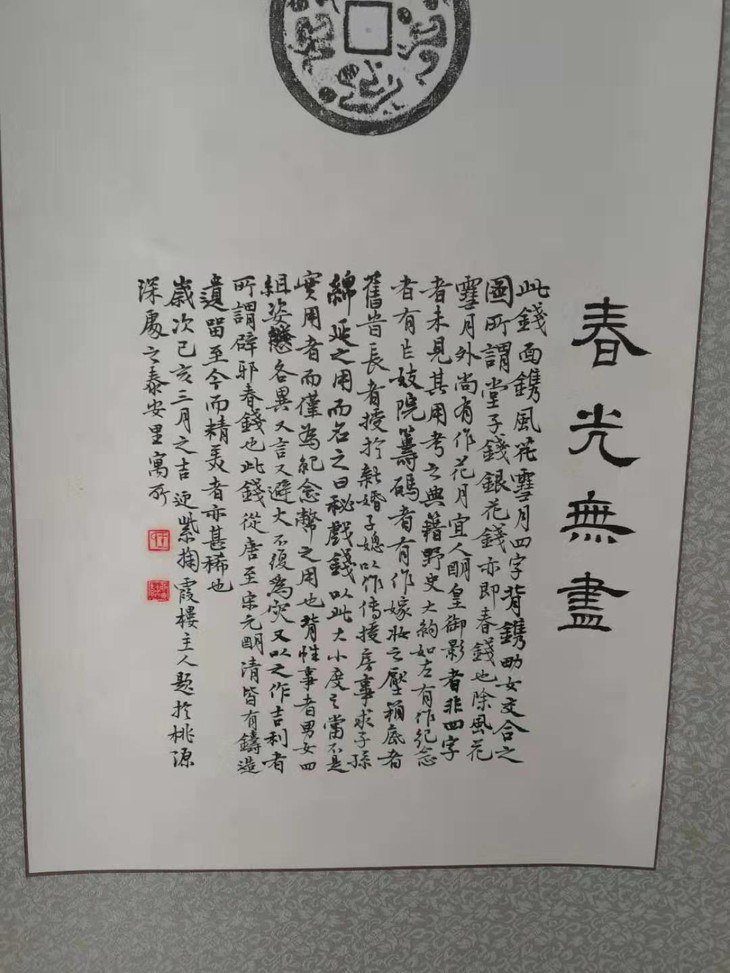 春光無盡
此錢面鐫風花雪月四字背鐫男女交合之
圖所謂堂子錢銀花錢亦即春錢也除風花
雪月外尚有作花月宜人明皇御影者非四字
者未見其用考之典籍野史大約如左有作紀念
者有作妓院籌碼者有作嫁妝之壓箱底者
舊昔長者授於新婚子媳以作傳授房事求子孫
綿延之用而名之曰秘戲錢以此大小度之當不是
實用者而僅為紀念幣之用也背性事者男女四
組姿態各異又言又避火不復為灾又以之作吉利者
所謂辟邪春錢也此錢從唐至宋元明清皆有鑄造
遺留至今而精美者亦甚稀也
歲次己亥三月之吉 紫掬霞樓主人題於桃源
深處之泰安里寓所